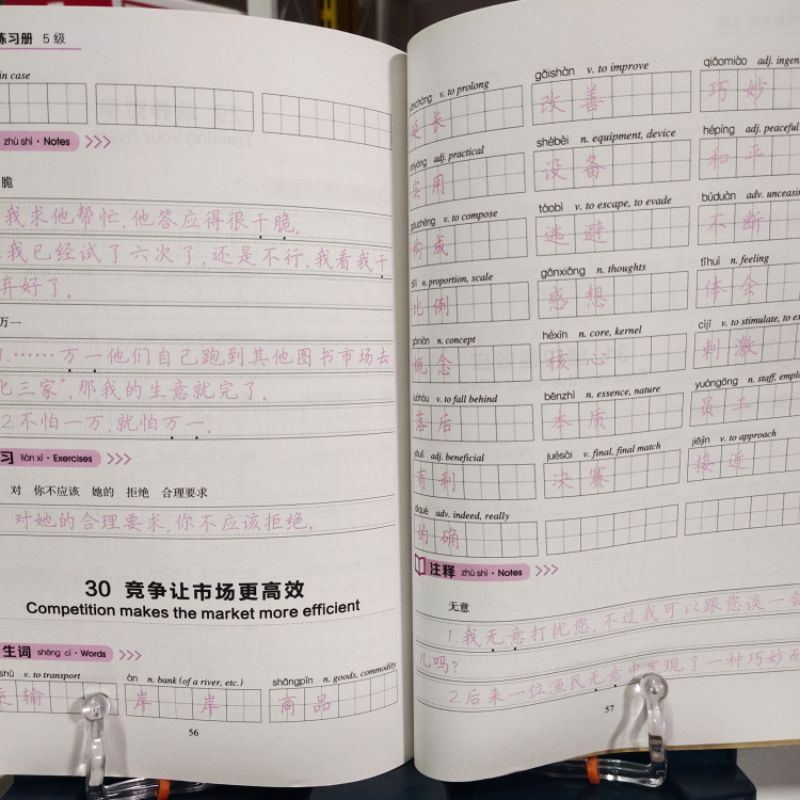 练习册 5 级
in case
zhù shì · Notes
脆
我求他帮忙,他答应得很干脆。
我已经试了六次了,还是不行,我看我干
弃好了。
万一
1.……万一他们自己跑到其他图书市场去
比三家”,那我的生意就完了。
2.不怕一万,就怕万一。
习 liàn xí · Exercises
对 你不应该 她的 拒绝 合理要求
对她的合理要求,你不应该拒绝。
30 竞争让市场更高效
Competition makes the market more efficient
生词 shēng cí · Words
v. to transport
àn n. bank (of a river, etc.)
shāngpǐn n. goods, commodity
输
岸 岸
商品
56
v. to prolong
gǎishàn v. to improve
qiǎomiào adj.
延长
改善
巧妙
adj. practical
shèbèi n. equipment, device
hépíng adj. peaceful
实用
设备
和平
v. to compose
táobì v. to escape, to evade
búduàn adv.
构成
逃避
不断
n. proportion, scale
gǎnxiǎng n. thoughts
tǐhuì n. feeling
比例
感想
体会
n. concept
héxīn n. core, kernel
cìjī v. to stimulate, to
概念
核心
刺激
v. to fall behind
běnzhì n. essence, nature
yuángōng n. staff,
落后
本质
员工
adj. beneficial
juésài v. final, final match
jiējìn v. to approach
有利
决赛
接近
díquè adv. indeed, really
的确
注释 zhù shì · Notes
无意
1.我无意打扰您,不过我可以跟您谈一会
儿吗?
2.后来一位渔民无意中发现了一种巧妙
57